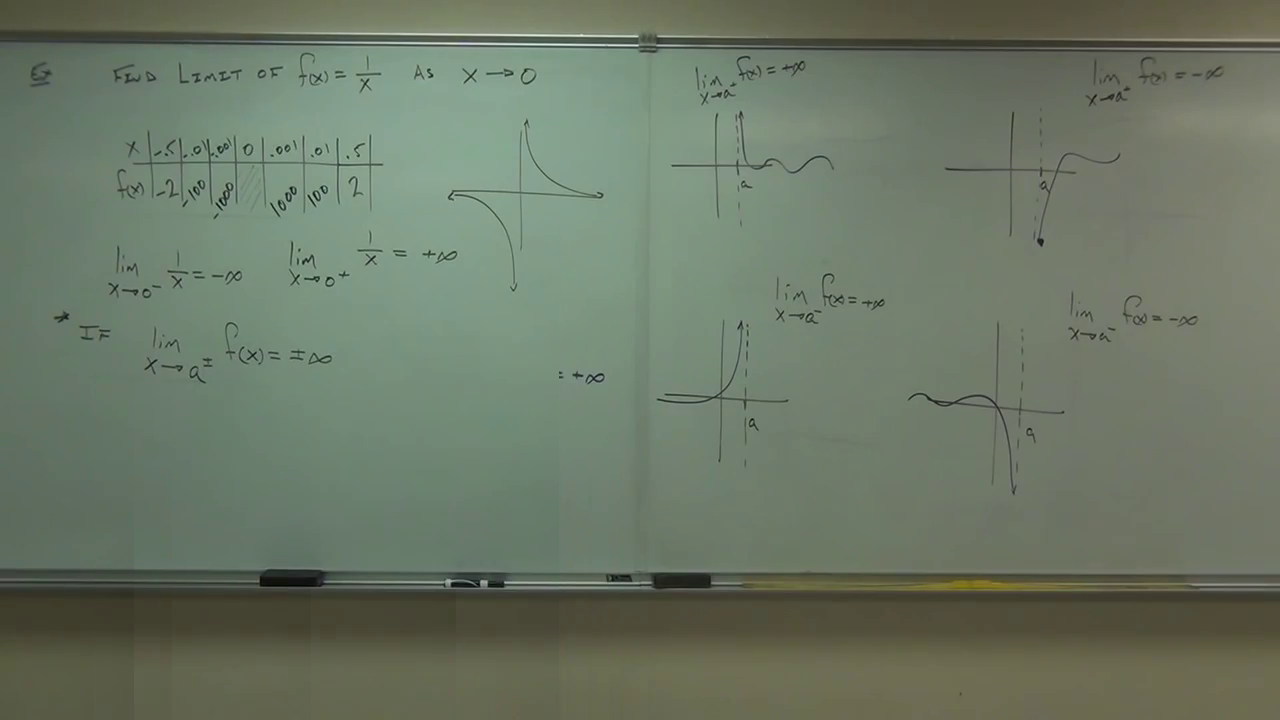 Ex FIND LIMIT OF f(x) = 1/x AS x → 0
x -.5 -.01 -.001 0 .001 .01 .5
f(x) -2 -100 -1000 1000 100 2
lim x→0⁻ 1/x = -∞ lim x→0⁺ 1/x = +∞
* IF lim x→a± f(x) = ±∞
= +∞
lim x→a⁺ f(x) = +∞
a
lim x→a⁺ f(x) = -∞
a
lim x→a⁻ f(x) = +∞
a
lim x→a⁻ f(x) = -∞
a